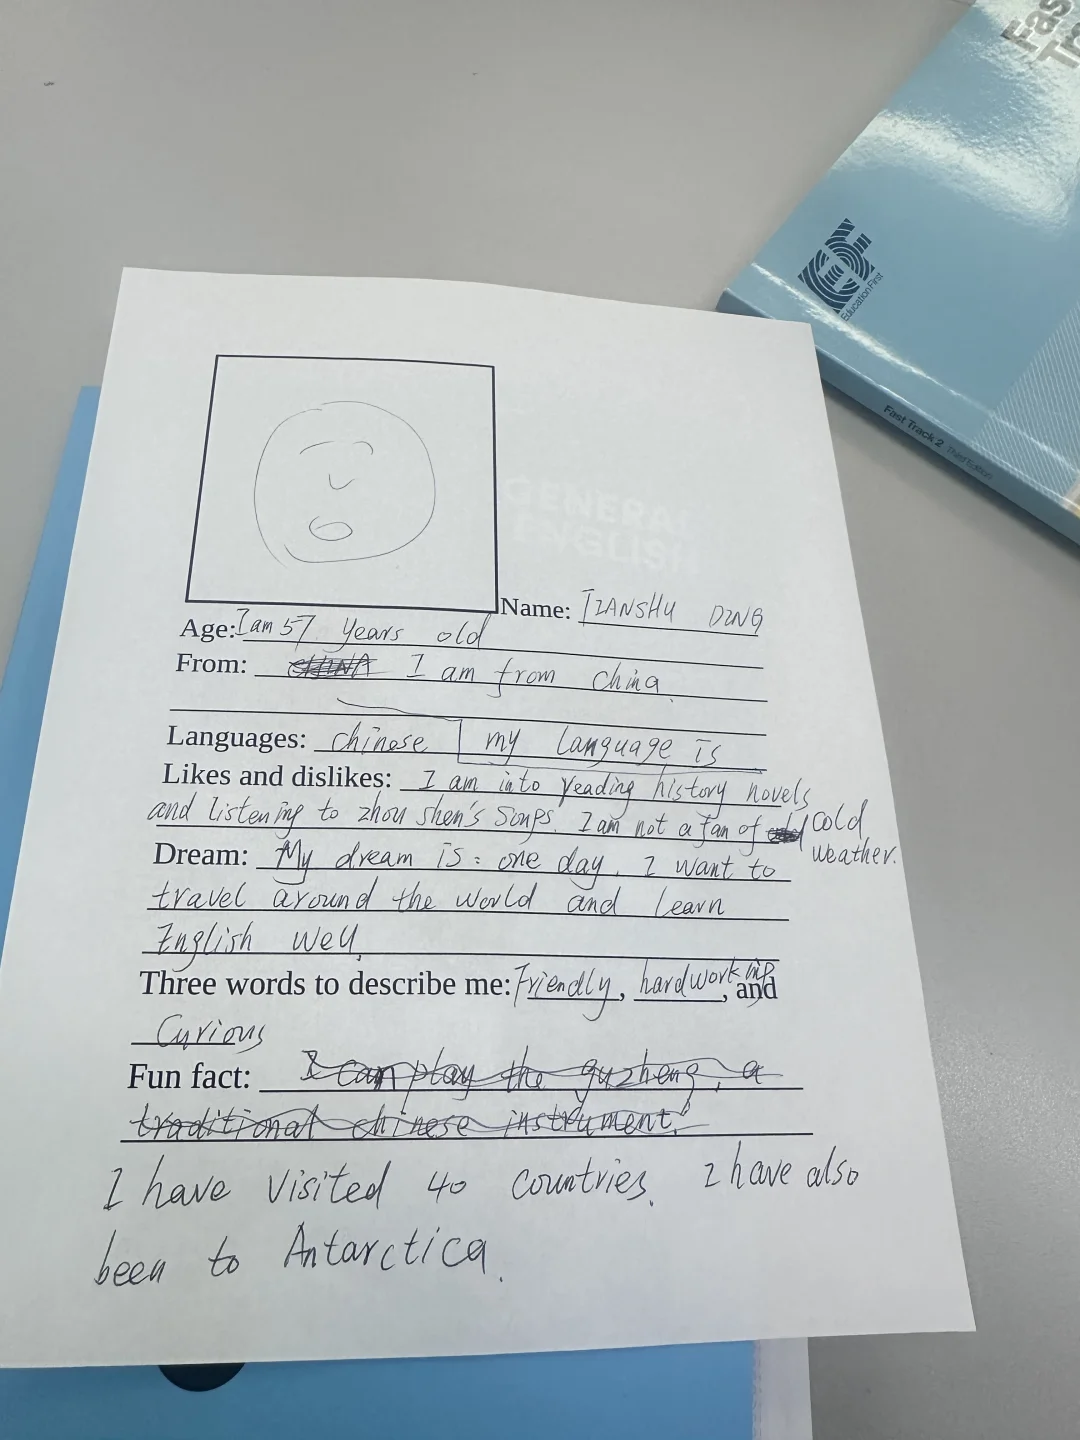 Fas
Tr
EF
Education First
Fast Track 2 Third Edition
GENERAL
ENGLISH
Name: TIANSHU DING
Age: I am 57 years old
From: CHINA I am from china
Languages: chinese my language is
Likes and dislikes: I am into reading history novels
and listening to zhou shen's songs. I am not a fan of cold
weather.
Dream: My dream is: one day, I want to
travel around the world and learn
English well.
Three words to describe me: Friendly, hardworking, and
Curious
Fun fact: I can play the guzheng, a
traditional chinese instrument.
I have visited 40 countries. I have also
been to Antarctica.